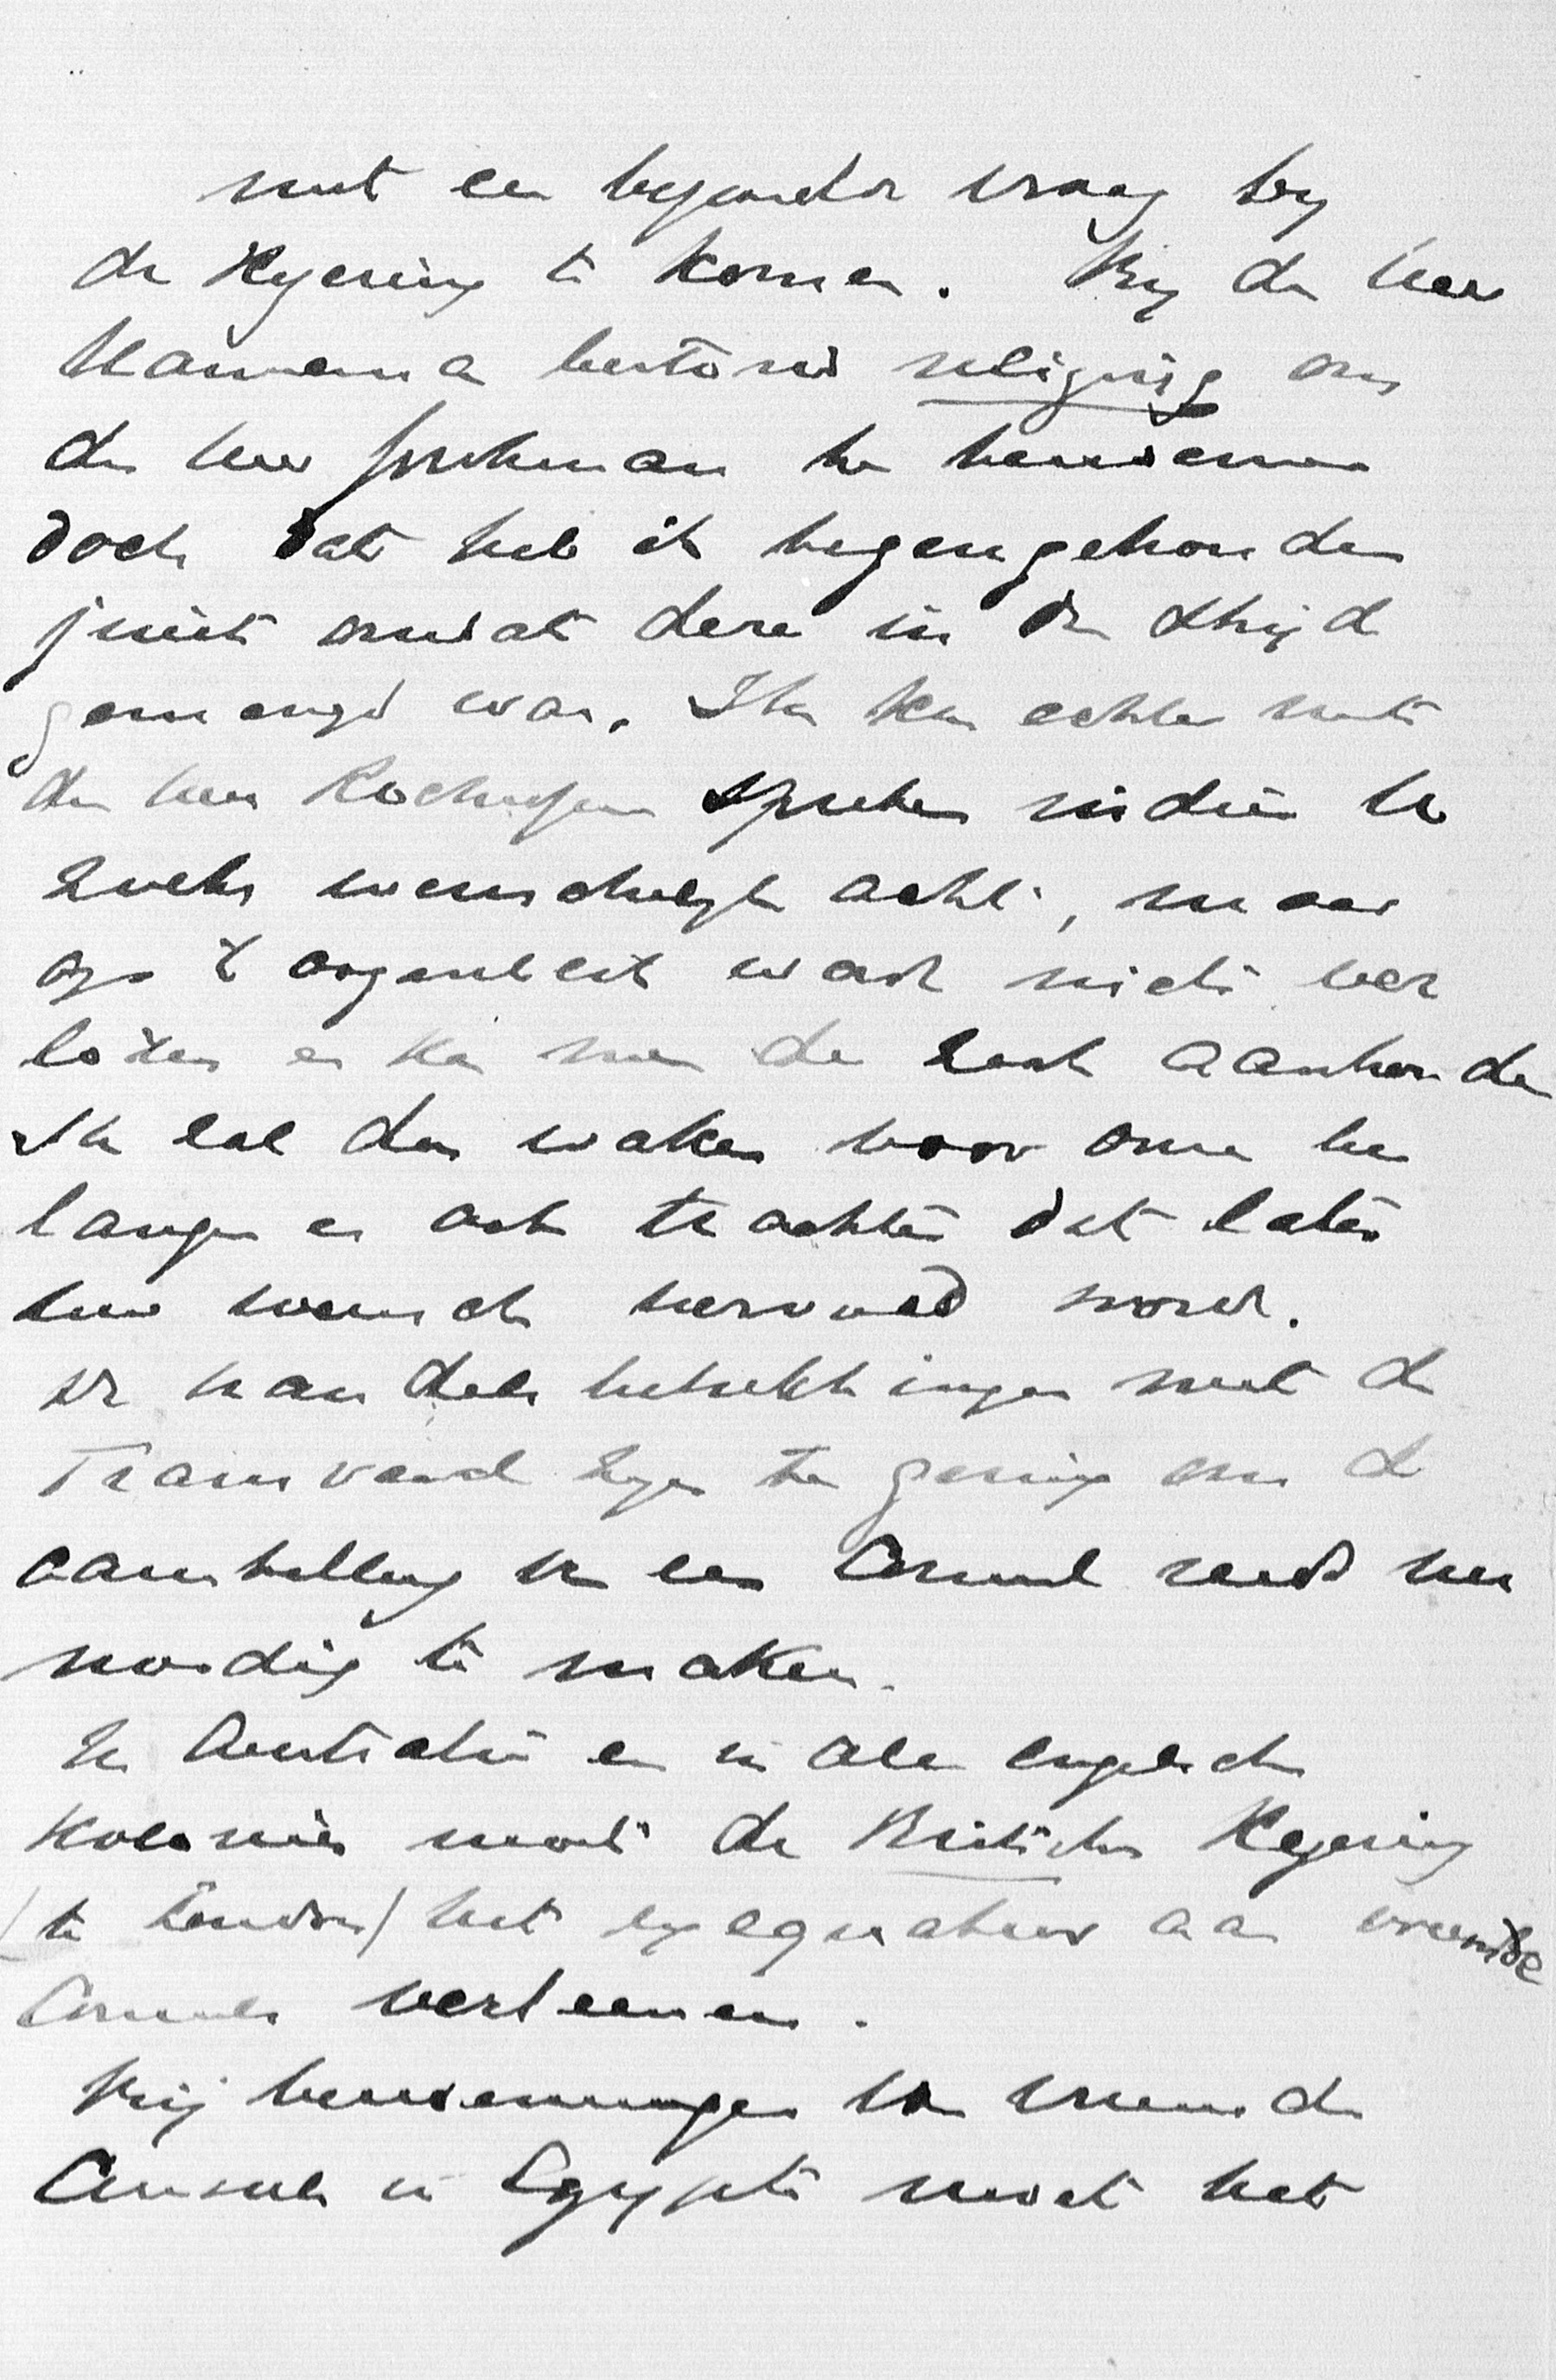 met een byzonder vraag by
de Regering te komen. By de heer
Hannema bestond neliging om
de heer Sprekman te benoemen
doch dat heb ik tegengehouden
juist omdat deze in de strijd
gemengd was. Ik kan echter met
de heer Rochussen spreken indien U
zulks wenschelyk acht, maar
op 't oogenblik ware niets ver
loren en kan men de zaak aanhouden
Ik zal dan waken voor onze be
langen en ook trachten dat later
uw wensch vervuld word.
De handels betrekkingen met de
Transvaal zyn te gering om de
aanstelling van een Consul reeds nu
noodig te maken.
In Australië en in alle engelsche
Kolonien moet de Britsche Regering
(te Londen) het exequatur aan vreemde
Consuls verleenen.
Bij benoemingen van vreemde
Consuls in Egypte moet het